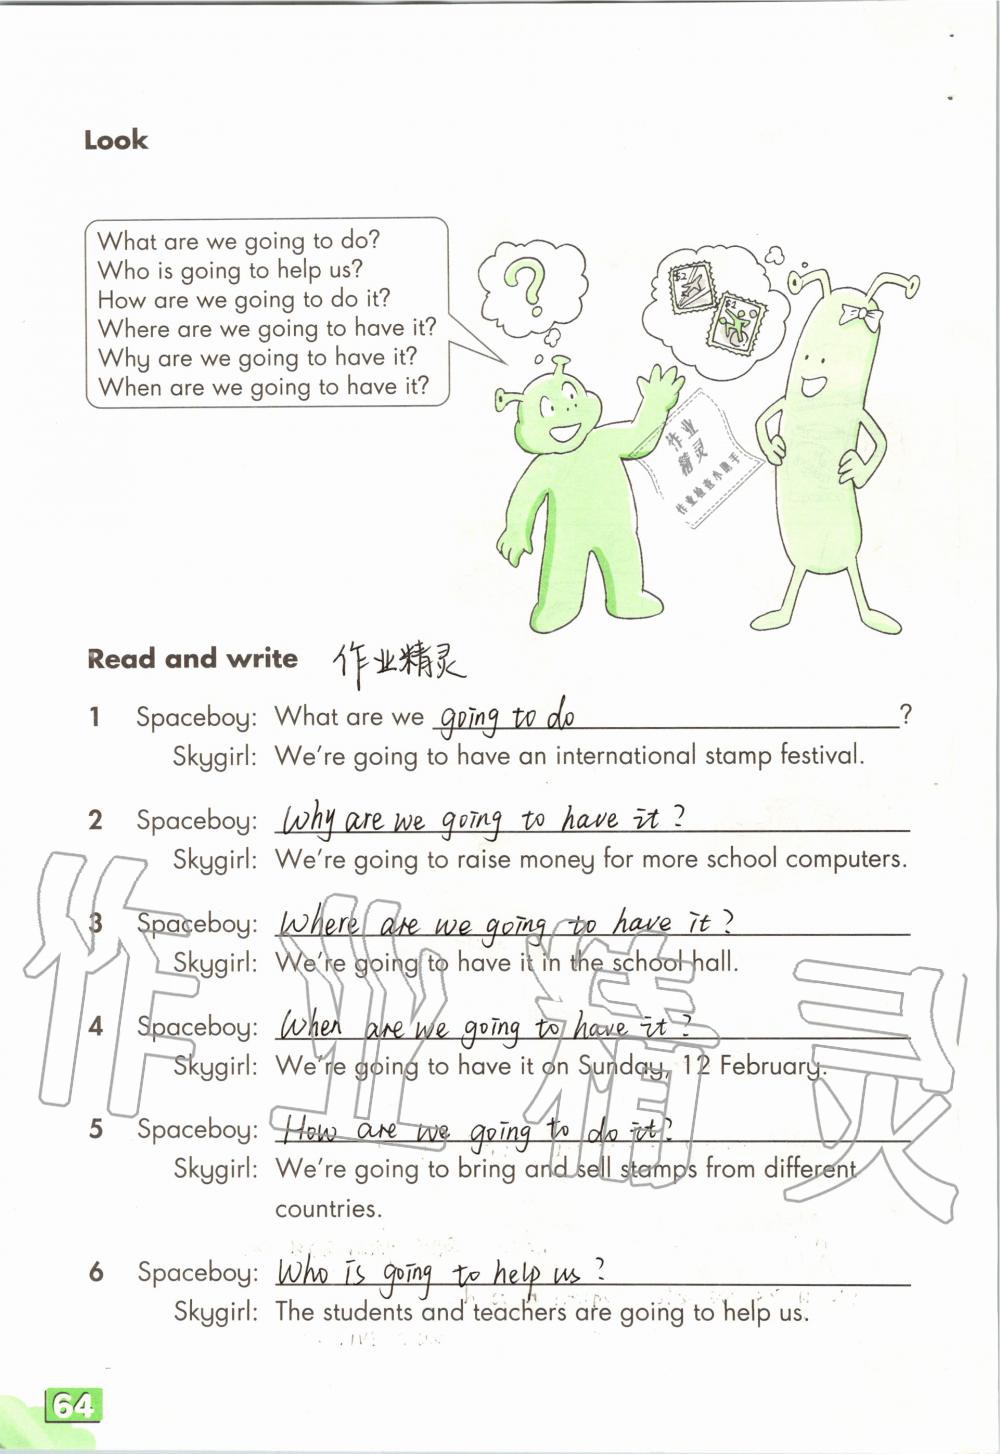 Look
What are we going to do?
Who is going to help us?
How are we going to do it?
Where are we going to have it?
Why are we going to have it?
When are we going to have it?
$2
$1
作业
精灵
作业检查小助手
Read and write 作业精灵
1 Spaceboy: What are we going to do ?
Skygirl: We're going to have an international stamp festival.
2 Spaceboy: Why are we going to have it ?
Skygirl: We're going to raise money for more school computers.
3 Spaceboy: Where are we going to have it ?
Skygirl: We're going to have it in the school hall.
4 Spaceboy: When are we going to have it ?
Skygirl: We're going to have it on Sunday, 12 February.
5 Spaceboy: How are we going to do it?
Skygirl: We're going to bring and sell stamps from different
countries.
6 Spaceboy: Who is going to help us ?
Skygirl: The students and teachers are going to help us.
作业精灵
64